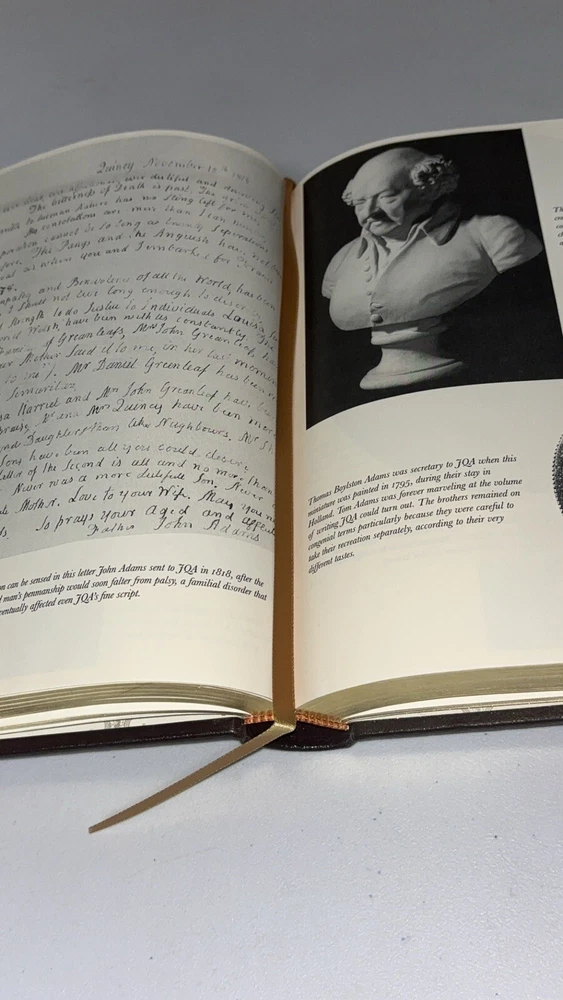 Quincy November 10th 1818
your dear
The bitterness of Death is past. The
to human Nature has no Sting left for me.
My consolations are more than I can
Separation cannot be so long as twenty Separations
The Pangs and the Anguish have not been
as when you and I embarked for France
78.
Sympathy and Benevolence of all the World, has been
I shall not live long enough to
Strength to do Justice to Individuals Louisa
Welsh, have been with us constantly. The
of Greenleafs, Mrs John Greenleaf,
your Mother said it to me, in her last moments
to me". Mr Daniel Greenleaf has been
Samaritan
Harriet and Mrs John Greenleaf have
and Mrs Quincy have been more
Daughters than like Neighbours. Mr
Sons have been all you could desire.
of the Second is all and no more than
Never was a more dutiful Son. Never
Mother. Love to your Wife. May you
So prays your Aged and
Father John Adams
on can be sensed in this letter John Adams sent to JQA in 1818, after the
man's penmanship would soon falter from palsy, a familial disorder that
eventually affected even JQA's fine script.
Thomas Boylston Adams was secretary to JQA when this
miniature was painted in 1795, during their stay in
Holland. Tom Adams was forever marveling at the volume
of writing JQA could turn out. The brothers remained on
congenial terms particularly because they were careful to
take their recreation separately, according to their very
different tastes.